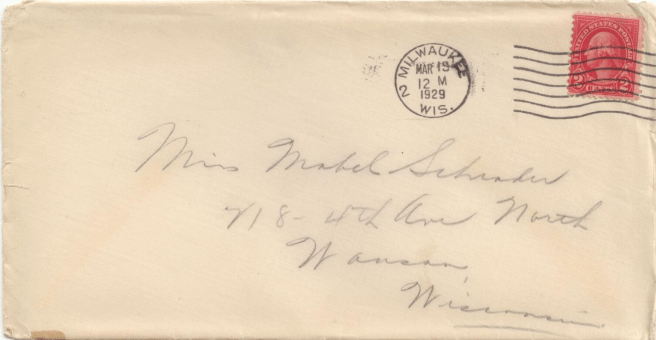 MILWAUKEE
MAR 19
12 M
1929
2
WIS.
UNITED STATES POSTAGE
2 2
Miss Mabel Schrader
718- 4th Ave North
Wausau,
Wisconsin.